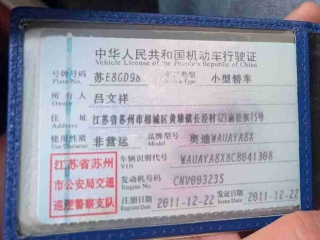 中华人民共和国机动车行驶证
Vehicle License of the People's Republic of China
号牌号码 苏E8GD98 车辆类型 小型轿车
Plate No.
所有人 吕文祥
Owner
住址 江苏省苏州市相城区黄埭镇长泾村(2)庙巷桥75号
Address
使用性质 非营运 品牌型号 奥迪WAUAYA8X
Use Character Model
江苏省苏州
市公安局交通
巡逻警察支队
车辆识别代号 WAUAYA8XCB041308
VIN
发动机号码 CNV003235
Engine No.
注册日期 2011-12-22 发证日期 2011-12-22
Register Date Issue Date